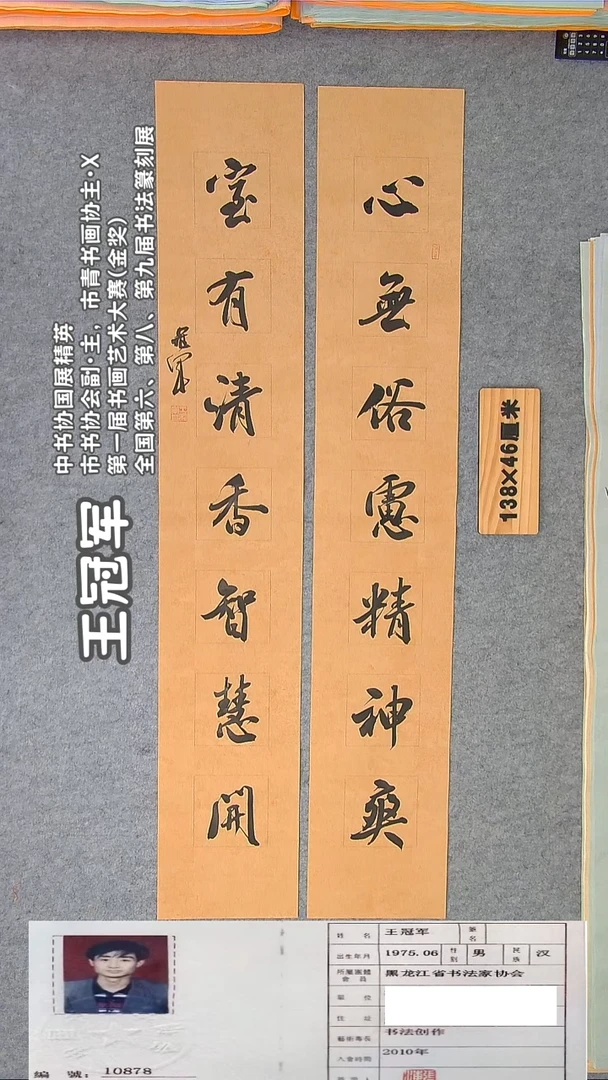 心無俗慮精神爽
室有清香智慧開
冠軍
138×46厘米
王冠军
中书协国展精英
市书协会副·主,市青书画协主·X
第一届书画艺术大赛(金奖)
全国第六、第八、第九届书法篆刻展
姓 名 王冠军 筆名
出生年月 1975.06 性别 男 民族 汉
所屬團體會員 黑龙江省书法家协会
單 位
住 址
藝術專長 书法创作
入會時間 2010年
编 號: 10878